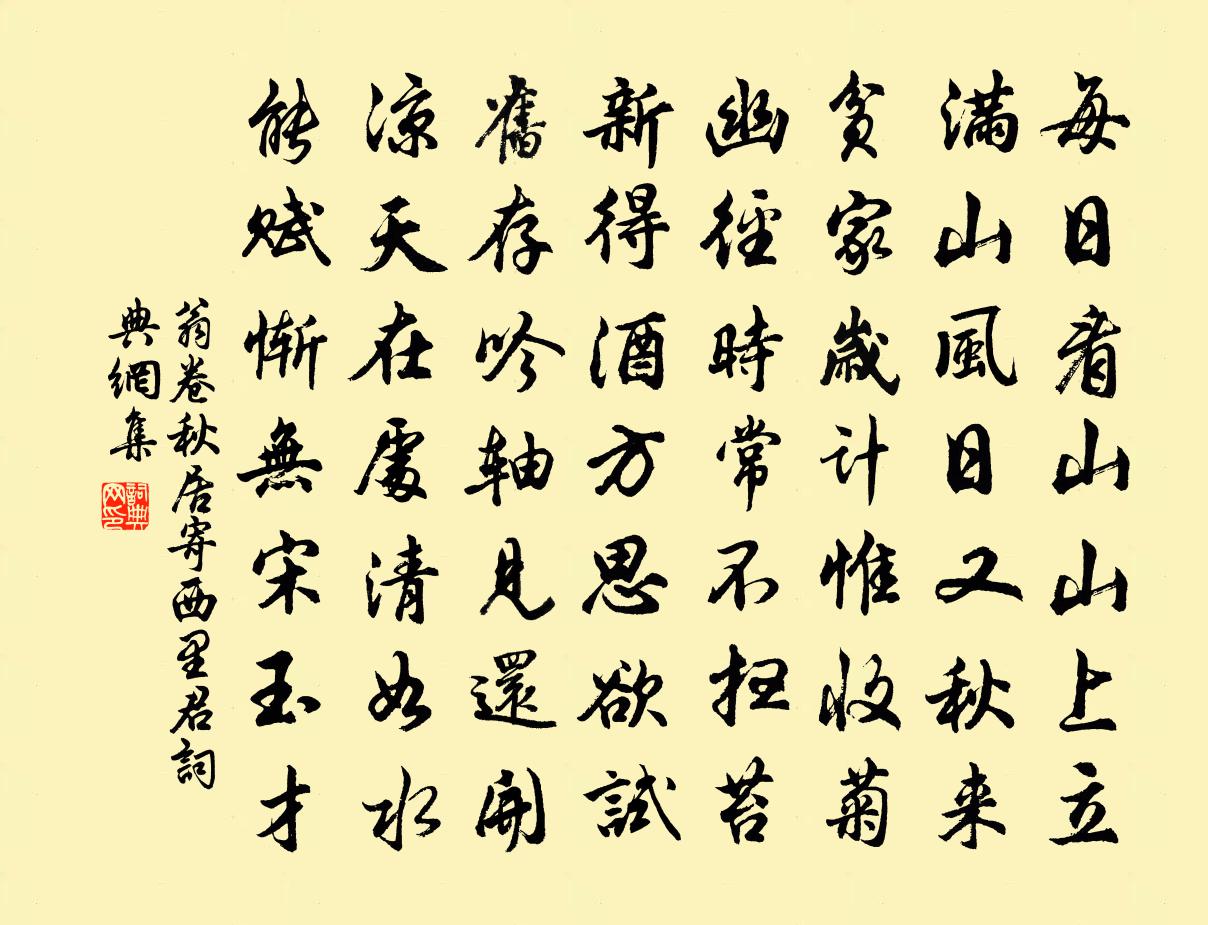 每日看山山上立
滿山風日又秋来
貧家歲計惟收菊
幽徑時常不掃苔
新得酒方思欲試
舊存吟軸見還開
涼天在處清如水
能賦慚無宋玉才
翁卷秋居寄西里君詞
典網集
詞典
网印